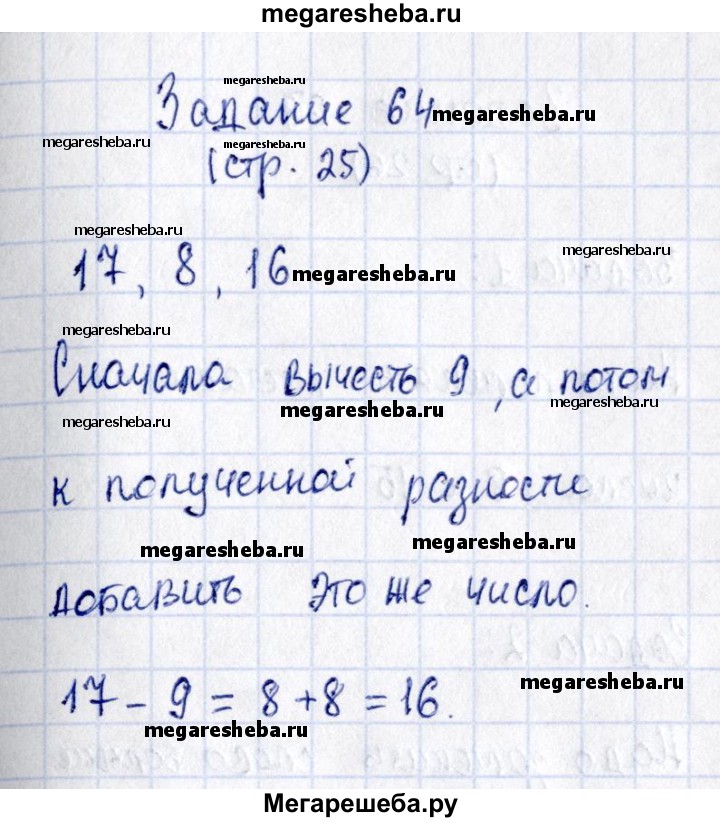 megaresheba.ru
megaresheba.ru
Задание 64
megaresheba.ru
megaresheba.ru
megaresheba.ru
(стр. 25)
megaresheba.ru
megaresheba.ru
17, 8, 16
megaresheba.ru
megaresheba.ru
Сначала вычесть 9, а потом
megaresheba.ru
megaresheba.ru
megaresheba.ru
к полученной разности
megaresheba.ru
megaresheba.ru
добавить это же число.
megaresheba.ru
17 - 9 = 8 + 8 = 16.
megaresheba.ru
Мегарешеба.ру